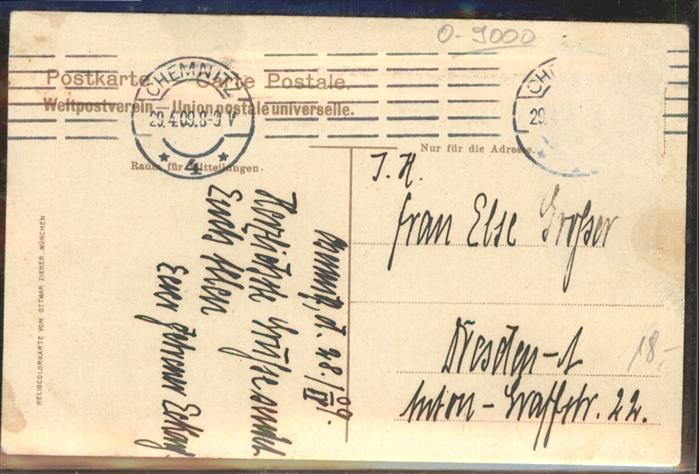 O-9000
Postkarte — Carte Postale.
Weltpostverein — Union postale universelle.
CHEMNITZ
29.4.09.8-9 V
* 4 *
CH
29.
Raum für Mitteilungen.
Nur für die Adresse.
Frau Else Großer
Dresden-A
Anton-Graffstr. 22.
18,-
d. 28/IV 09.
Herzliche Grüße
Euch allen
Euer
HELIOCOLORKARTE VON OTTMAR ZIEHER, MÜNCHEN